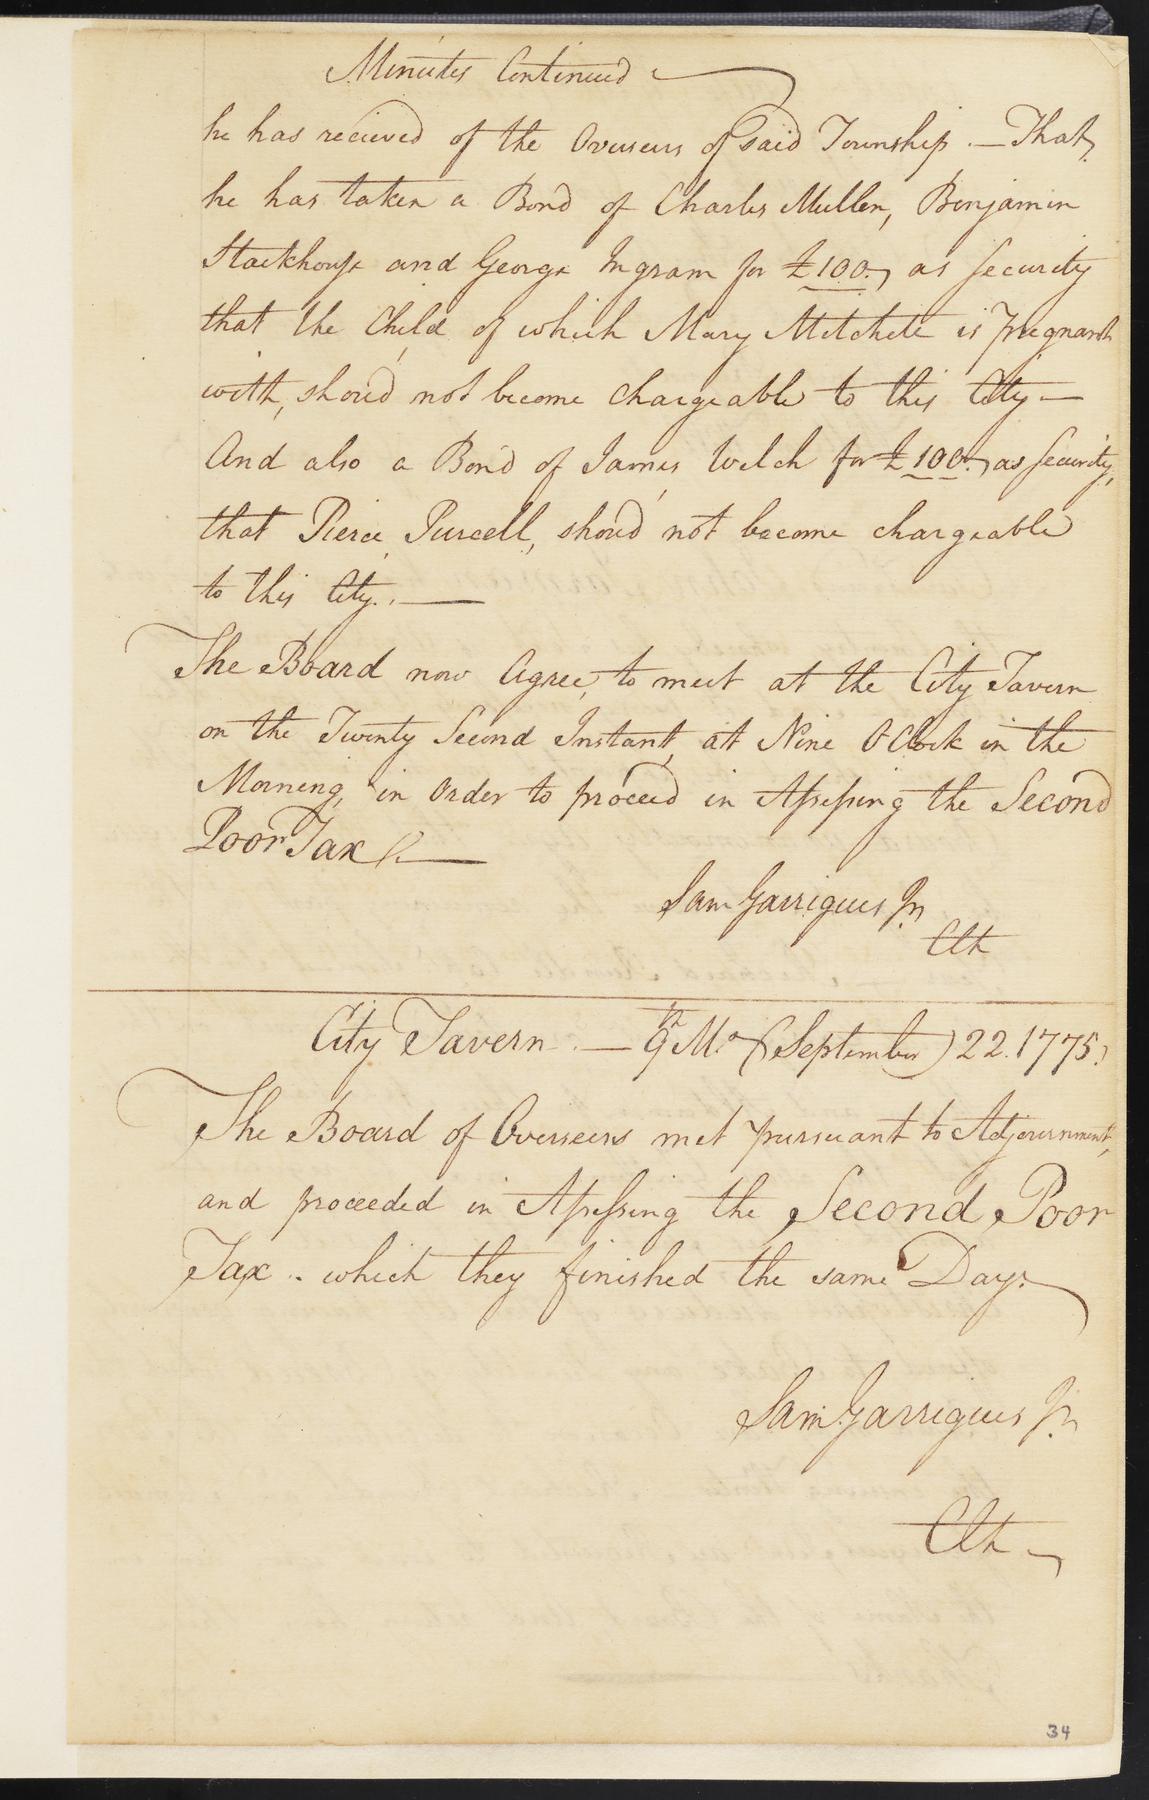 Minutes Continued
he has recieved of the Overseers of Said Township. — That,
he has taken a Bond of Charles Mullen, Benjamin
Stackhouse and George Ingram for £100., as Security
that the Child of which Mary Mitchele is pregnant
with, shou'd not become chargeable to this City —
And also a Bond of James Welch for £100., as Security,
that Pierce Purcell, shou'd not become chargeable
to this City. —
The Board now Agree, to meet at the City Tavern
on the Twenty Second Instant, at Nine OClock in the
Morning, in order to proceed in Assessing the Second
Poor Tax. —
Sam Garrigues Jr.
Clk
City Tavern. — 9th Mo. (September) 22. 1775.
The Board of Overseers met pursuant to Adjournment,
and proceeded in Assessing the Second Poor
Tax. which they finished the same Day.
Sam Garrigues Jr.
Clk
34